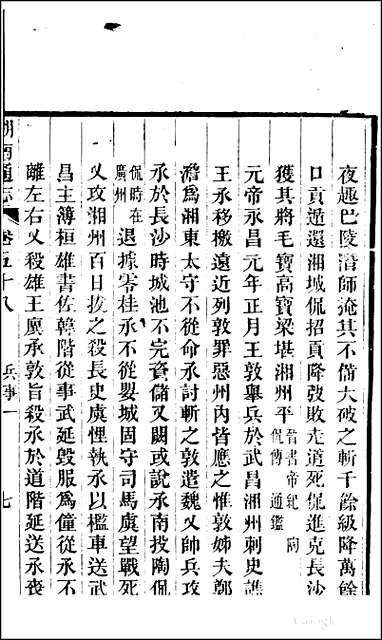 夜趣巴陵潛師掩其不備大破之斬千餘級降萬餘
口貢遁還湘城侃招貢降弢敗走道死侃進克長沙
獲其將毛寶高寶梁堪湘州平晉書帝紀陶侃傳通鑑
元帝永昌元年正月王敦舉兵於武昌湘州刺史譙
王承移檄遠近列敦罪惡州內皆應之惟敦姊夫鄭
澹爲湘東太守不從命承討斬之敦遣魏乂帥兵攻
承於長沙時城池不完資儲又闕或說承南投陶侃
侃時在廣州退據零桂承不從嬰城固守司馬虞望戰死
乂攻湘州百日拔之殺長史虞悝執承以檻車送武
昌主簿桓雄書佐韓階從事武延毀服爲僮從承不
離左右乂殺雄王廙承敦旨殺承於道階延送承喪
湖南通志
卷五十八
兵事一
七
Google